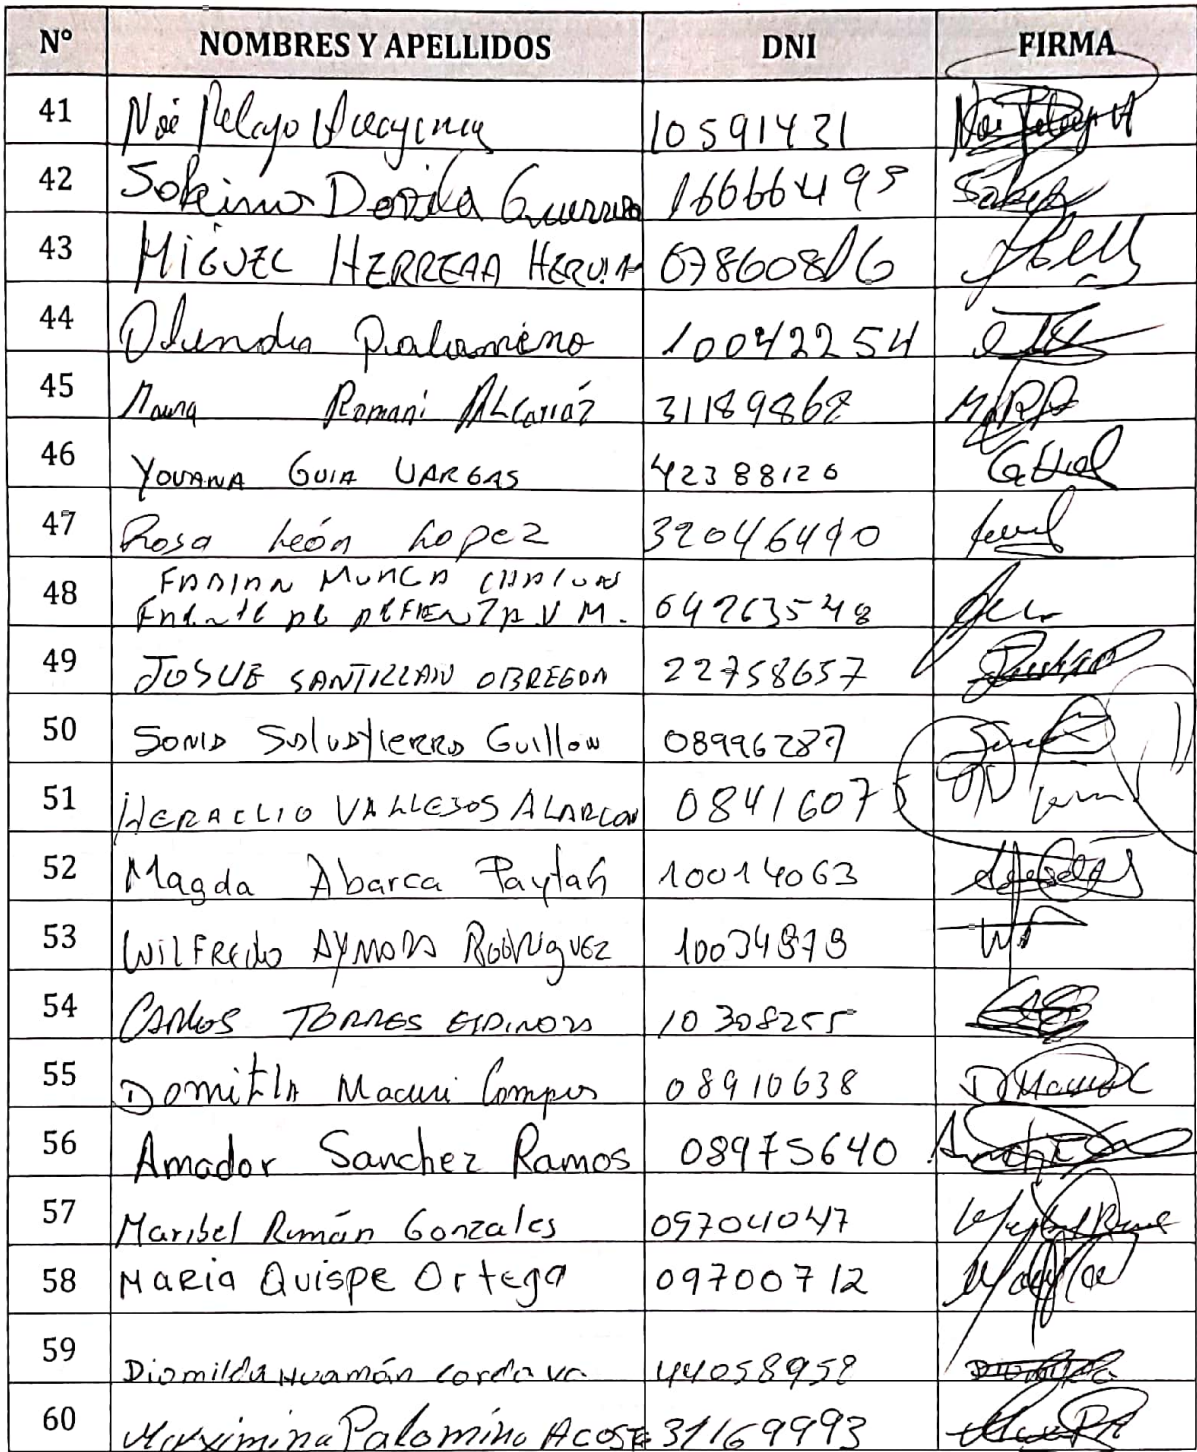 N° NOMBRES Y APELLIDOS DNI FIRMA
41 Noé Pelayo Huaycucy 10591431
42 Sobeino Davila Guerrero 16666495
43 MIGUEL HERRERA 07860816
44 Olinda Palomino 10042254
45 Maura Romani ALCarráz 31189868
46 YOVANA GUIA VARGAS 42388126
47 Rosa León Lopez 32046490
48 FABIAN MUNCA
FRENTE DE DEFIENZA V M. 04263548
49 JOSUE SANTILLAN OBREGON 22758657
50 SONIA Salvatierra Guillow 08996287
51 HERACLIO VALLEJOS ALARCON 08416075
52 Magda Abarca Paytan 10014063
53 WILFREDO AYMARA RODRIGUEZ 10034878
54 CARLOS TORRES ESPINOZA 10308255
55 Domitila Macuri Campos 08910638
56 Amador Sanchez Ramos 08975640
57 Maribel Román Gonzales 09704047
58 MARia Quispe Ortega 09700712
59 Diomilda Huamán cordova 44058958
60 Maximina Palomino ACOSTA 31169993